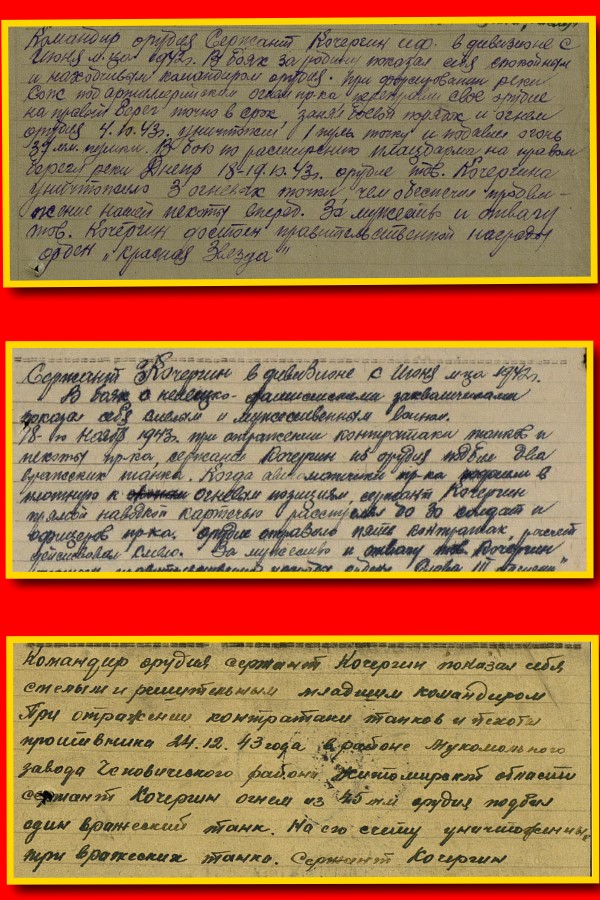 Командир орудия Сержант Кочергин И.Ф. в дивизионе с
Июня м-ца 1942г. В боях за родину показал себя спокойным
и находчивым командиром орудия. При форсировании реки
Сож под артиллерийским огнем пр-ка переправил свое орудие
на правый берег точно в срок, занял боевой порядок и огнем
орудия 4.10.43г. уничтожил 1 пул. точку и подавил огонь
В бою по расширению плацдарма на правом
берегу реки Днепр 18-19.10.43г. орудие тов. Кочергина
уничтожило 3 огневых точки чем обеспечил продви-
жение нашей пехоты вперед. За мужество и отвагу
тов. Кочергин достоин правительственной награды
орден „Красная Звезда"
Сержант Кочергин в дивизионе с Июня м-ца 1942г.
В боях с немецко-фашистскими захватчиками
показал себя смелым и мужественным воином.
18-го Ноября 1943г. при отражении контратаки танков и
пехоты пр-ка, сержант Кочергин из орудия подбил два
вражеских танка. Когда автоматчики пр-ка подошли в
плотную к огневым позициям, сержант Кочергин
прямой наводкой картечью рассеял до 30 солдат и
офицеров пр-ка. Орудие отразило пять контратак, расчет
действовал смело. За мужество и отвагу тов. Кочергин
правительственной награды ордена „Слава III степени"
Командир орудия сержант Кочергин показал себя
смелым и решительным младшим командиром
При отражении контратаки танков и пехоты
противника 24.12.43 года в районе Мукомольного
завода Чеповического района Житомирской области
сержант Кочергин огнем из 45 мм орудия подбил
один вражеский танк. На его счету уничтоженных
три вражеских танка. Сержант Кочергин